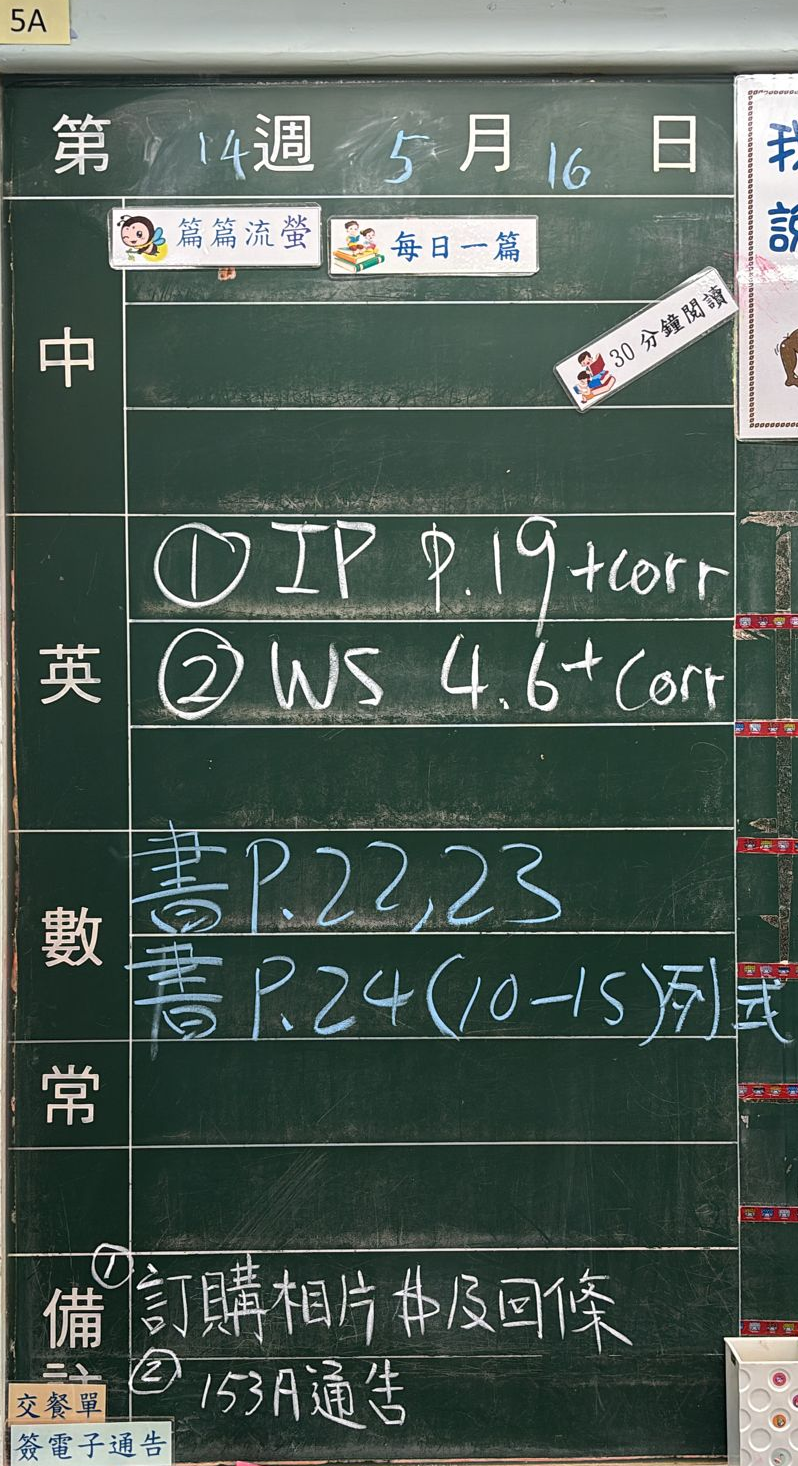 5A
第 14 週 5 月 16 日
篇篇流螢 每日一篇
30分鐘閱讀
中
英
① IP P.19 +corr
② WS 4.6 + Corr
數
書 P.22,23
書 P.24 (10-15) 列式
常
備註
① 訂購相片$及回條
② 153A通告
交餐單
簽電子通告
我
說